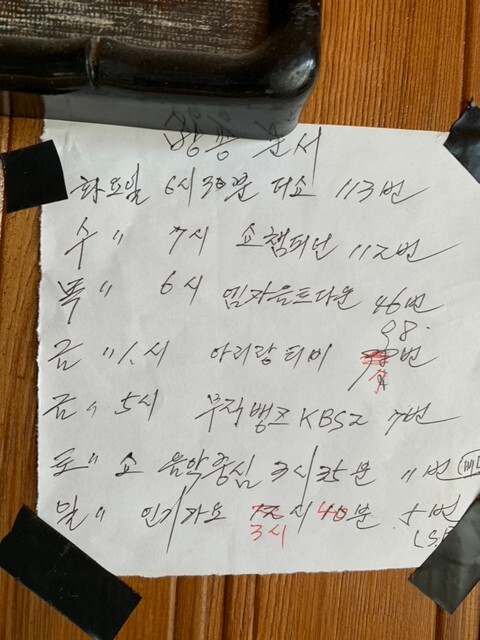 방송 순서
화요일 6시30분 더쇼 113번
수 〃 7시 쇼챔피언 112번
목 〃 6시 엠카운트다운 46번
98.
금 〃 1.시 아리랑티비 번
금 〃 5시 뮤직뱅크 KBS2 7번
토 〃 쇼 음악중심 3시35분 11번
일 〃 인기가요 시 40분 5번
3시